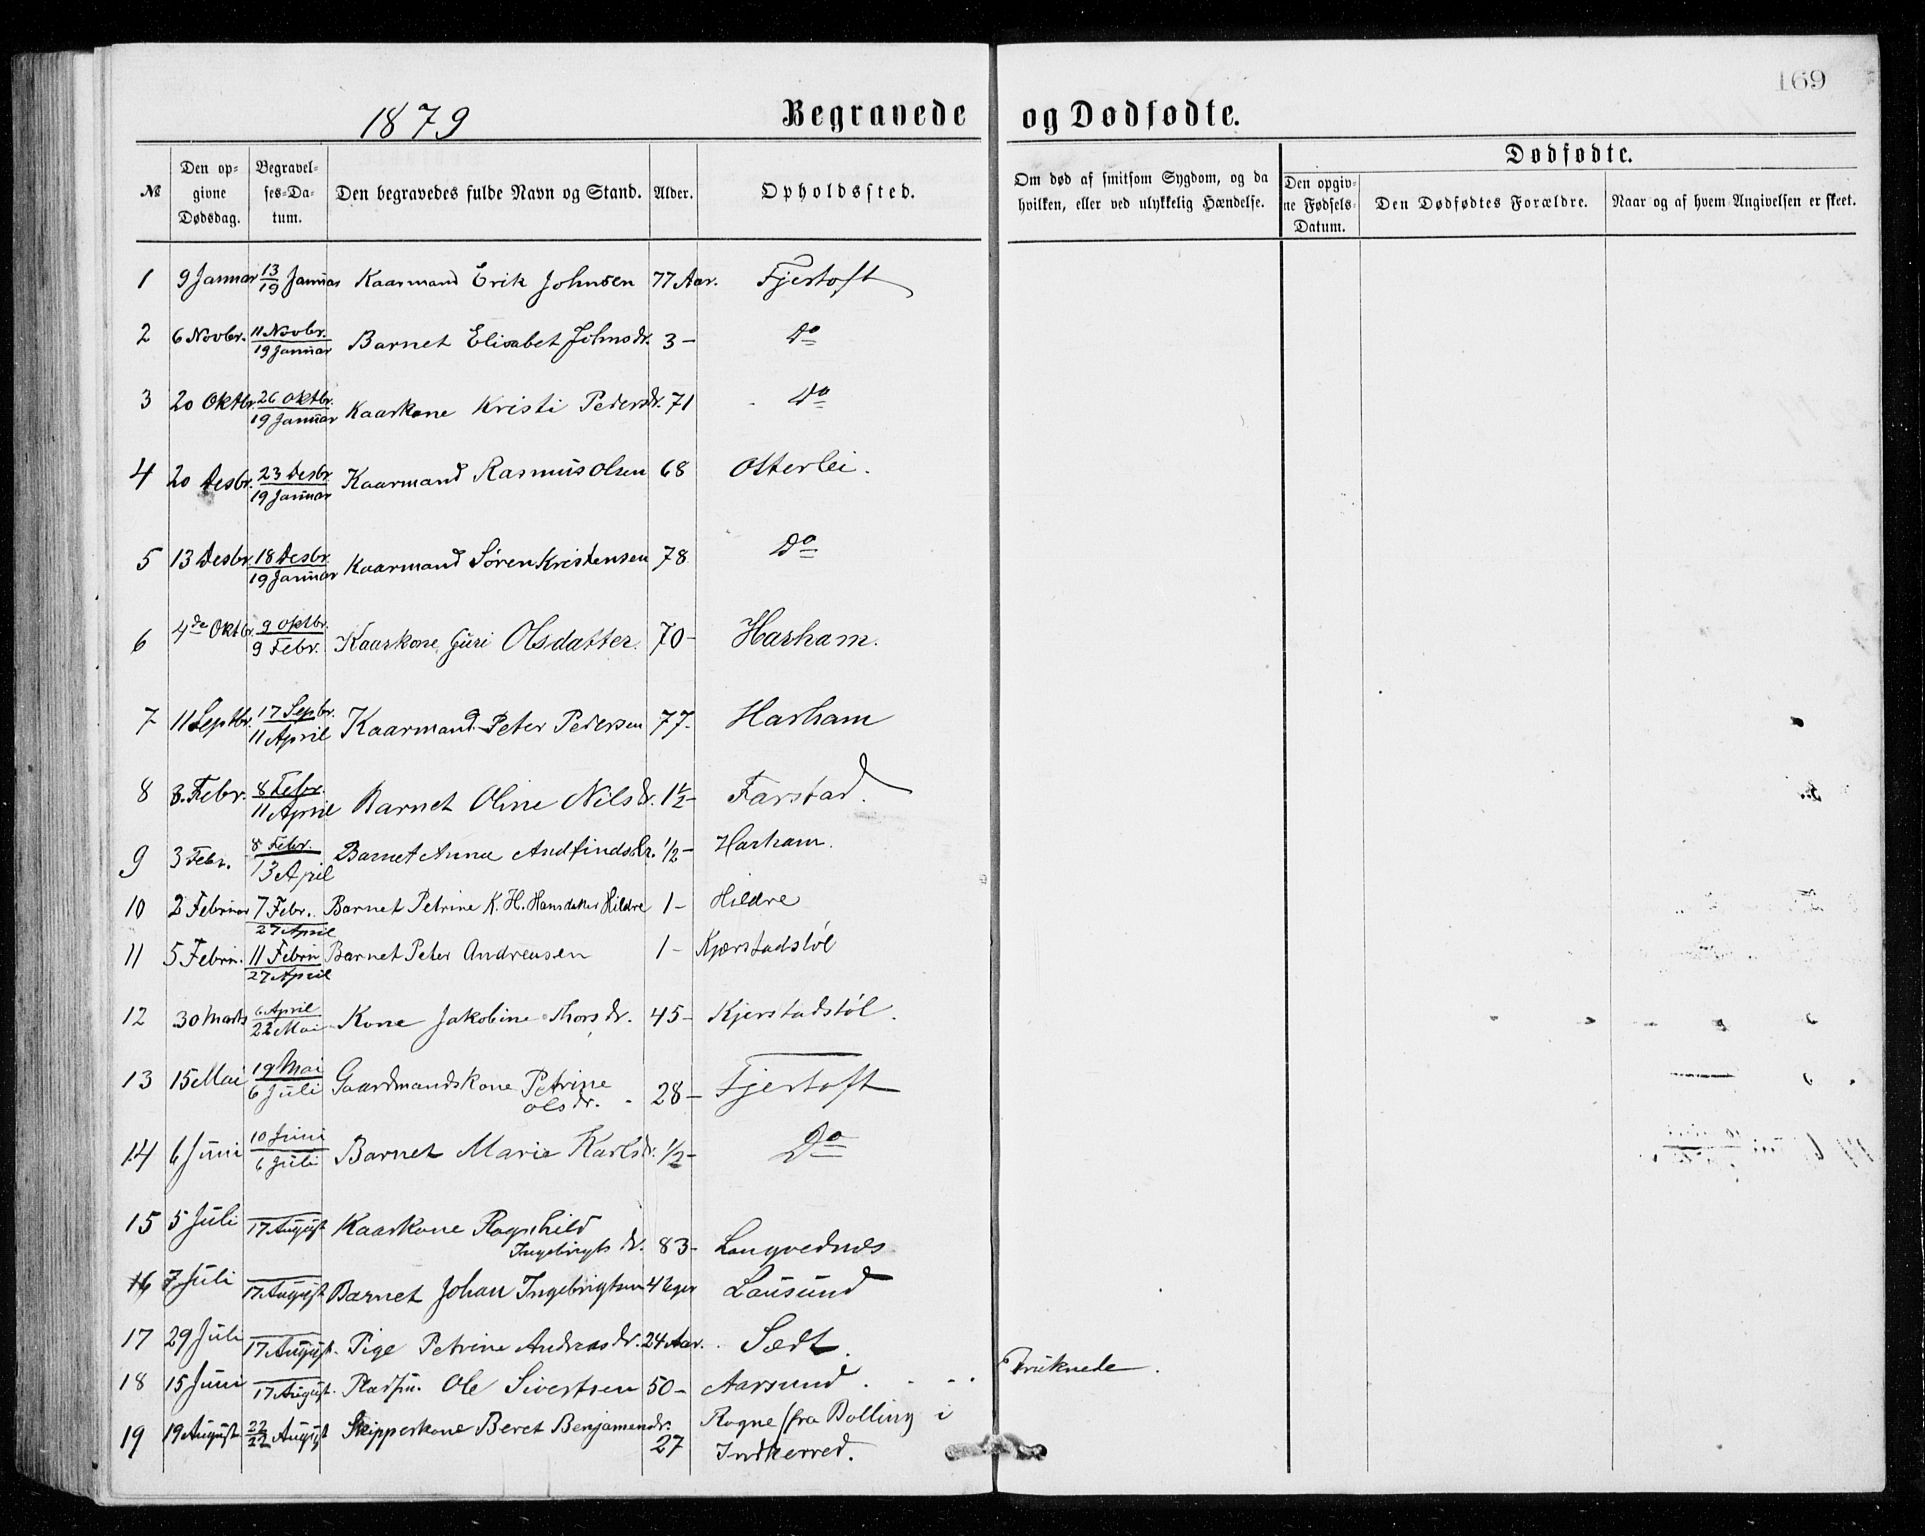 169
1879 Begravede og Dødfødte.
№ Den opgivne Dødsdag. Begravelses-Datum. Den begravedes fulde Navn og Stand. Alder. Opholdssted. Om død af smitsom Sygdom, og da hvilken, eller ved ulykkelig Hændelse. Dødfødte. Den opgivne Fødsels-Datum. Den Dødfødtes Forældre. Naar og af hvem Angivelsen er skeet.
1 9 Januar 13/19 Januar Kaarmand Erik Johnsen 77 Aar. Fjertoft
2 6 Novbr. 11 Novbr. / 19 Januar Barnet Elisabet Johnsdr. 3 - Do
3 20 Oktbr. 26 Oktbr. / 19 Januar Kaarkone Kristi Pedersdr. 71 Do
4 20 Desbr. 23 Desbr / 19 Januar Kaarmand Rasmus Olsen 68 Otterlei.
5 13 Desbr. 18 Desbr. / 19 Januar Kaarmand Søren Kristensen 78 Do
6 4de Oktbr. 9 Oktbr. / 9 Febr. Kaarkone Guri Olsdatter. 70 - Harham.
7 11 Septbr. 17 Sepbr. / 11 April Kaarmand Peter Pedersen 77 - Harham
8 3. Febr. 8 Febr. / 11 April Barnet Oline Nilsdr. 1 1/2 - Farstad.
9 3 Febr. 8 Febr. / 13 April Barnet Anna Andfindsdr. 1/2 - Harham.
10 2 Februar 7 Febr. / 27 April Barnet Petrine K. H. Hansdatter Hildre 1 - Hildre
11 5 Febru. 11 Febru / 27 April Barnet Peter Andreasen 1 - Kjærstadstøl
12 30 Marts 6 April / 22 Mai Kone Jakobine Thorsdr. 45 - Kjerstadstøl.
13 15 Mai 19 Mai / 6 Juli Gaardmandskone Petrine Olsdr. 28 - Fjertoft
14 6 Juni 10 Juni / 6 Juli Barnet Marie Karlsdr. 1/2 - Do
15 5 Juli 17 August Kaarkone Ragnhild Ingebrigtsdr. 83 - Longvednes
16 7 Juli 17 August Barnet Johan Ingebrigtsen 4 Uger Lausund
17 29 Juli 17 August. Pige Petrine Andreasdr. 24 Aar. Sædt.
18 15 Juni 17 August. Pladsm. Ole Sivertsen 50 - Aarsund. Druknede.
19 19 August 22/22 August Skipperkone Beret Benjamensdr. 27 Rogne (fra Bolling i Indherred.